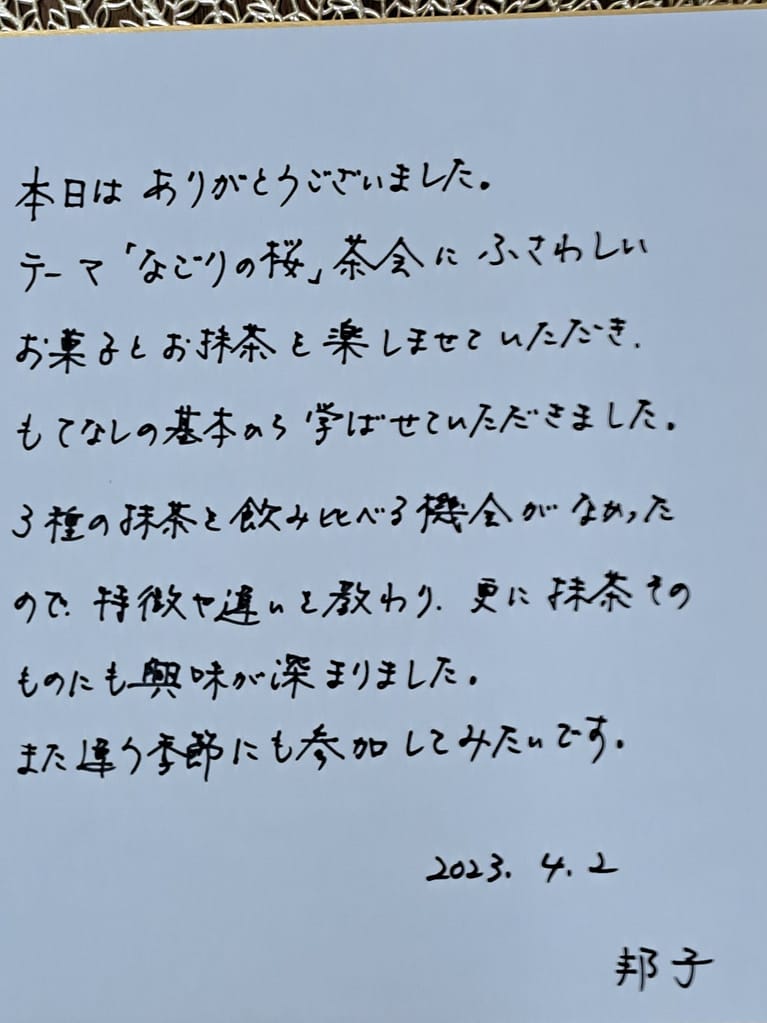 本日は ありがとうございました。
テーマ「なごりの桜」茶会に ふさわしい
お菓子とお抹茶を楽しませていただき、
もてなしの基本から学ばせていただきました。
3種の抹茶を飲み比べる機会がなかった
ので、特徴や違いを教わり、更に抹茶その
ものにも興味が深まりました。
また違う季節にも参加してみたいです。
2023. 4. 2
邦子